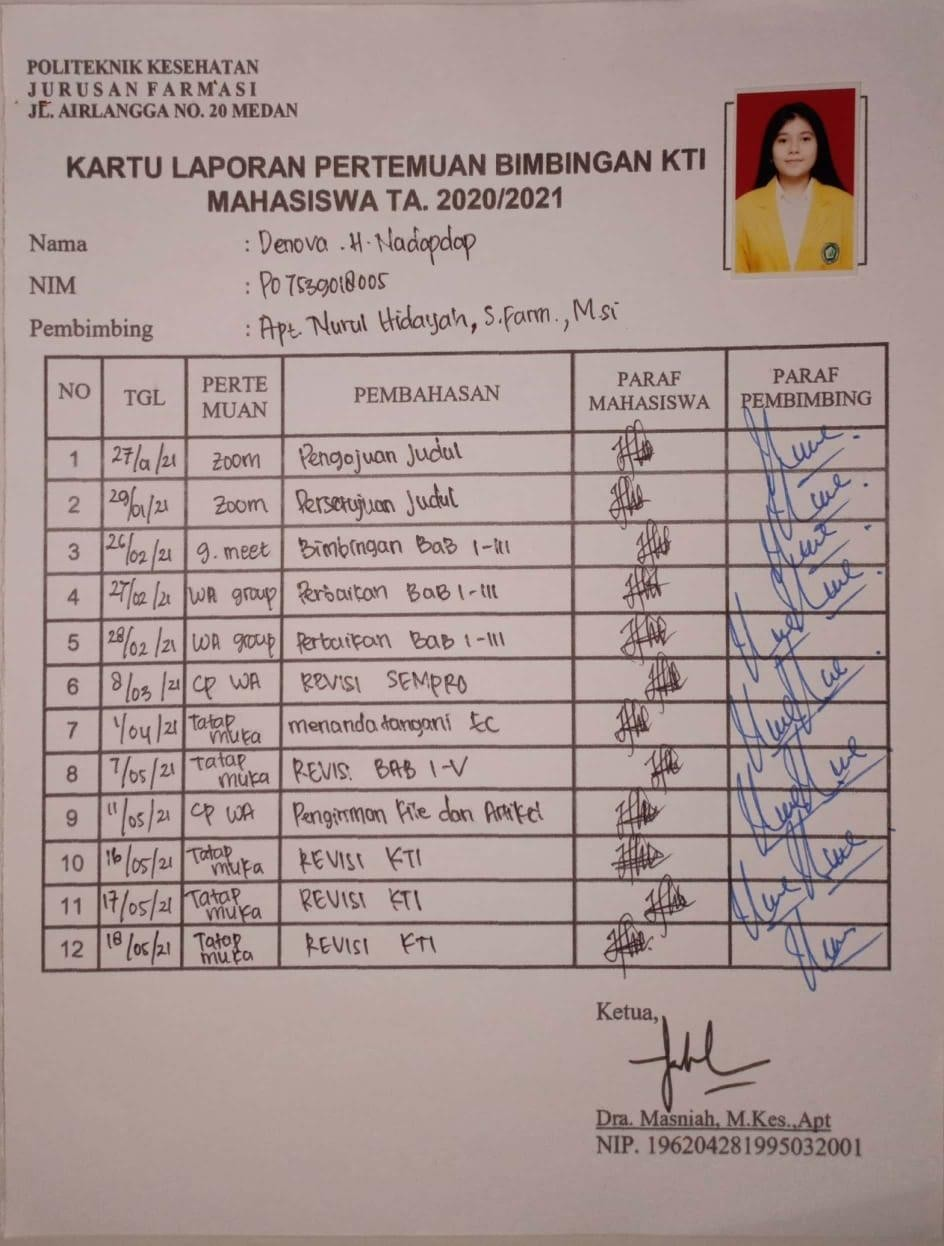 POLITEKNIK KESEHATAN
JURUSAN FARMASI
JL. AIRLANGGA NO. 20 MEDAN
KARTU LAPORAN PERTEMUAN BIMBINGAN KTI
MAHASISWA TA. 2020/2021
Nama : Denova .H. Nadapdap
NIM : PO7539018005
Pembimbing : Apt. Nurul Hidayah, S.Farm., Msi
NO TGL PERTE MUAN PEMBAHASAN PARAF MAHASISWA PARAF PEMBIMBING
1 27/01/21 Zoom Pengajuan Judul
2 29/01/21 Zoom Persetujuan Judul
3 26/02/21 g.meet Bimbingan BaB I-III
4 27/02/21 WA group Perbaikan BaB I-III
5 28/02/21 WA group Perbaikan BaB I-III
6 8/03/21 CP WA REVISI SEMPRO
7 1/04/21 Tatap muka menandatangani EC
8 7/05/21 Tatap muka REVISI BAB I-V
9 11/05/21 CP WA Pengiriman File dan Artikel
10 16/05/21 Tatap muka REVISI KTI
11 17/05/21 Tatap muka REVISI KTI
12 18/05/21 Tatap muka REVISI KTI
Ketua,
Dra. Masniah, M.Kes.,Apt
NIP. 196204281995032001